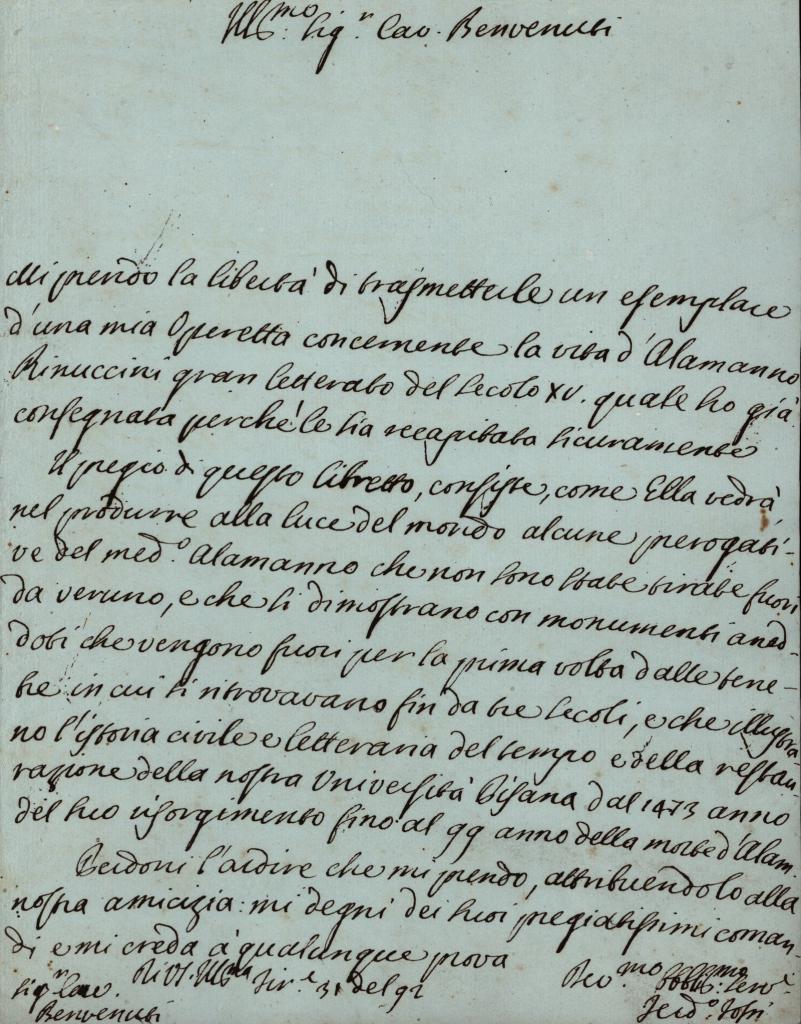 Ill:mo Sig.r Cav. Benvenuti
Mi prendo la libertà di trasmetterle un esemplare
d'una mia Operetta concernente la vita d'Alamanno
Rinuccini gran letterato del secolo XV. quale ho già
consegnata perchè le sia recapitata sicuramente
Il pregio di questo libretto, consiste, come Ella vedrà
nel produrre alla luce del mondo alcune prerogati-
ve del med.o Alamanno che non sono state tirate fuori
da veruno, e che si dimostrano con monumenti aned-
doti che vengono fuori per la prima volta dalle tene-
bre in cui si ritrovavano fin da tre secoli, e che illustra-
no l'istoria civile e letteraria del tempo e della restau-
razione della nostra Università Pisana dal 1473 anno
del suo risorgimento fino al 99 anno della morte d'Alam.
Perdoni l'ardire che mi prendo, attribuendolo alla
nostra amicizia: mi degni dei suoi pregiatissimi coman-
di e mi creda a qualunque prova
Di VS. Ill:ma Fir.e 31 del 92
Sig.r Cav. Benvenuti
Dev.mo Obbl:mo Serv.e
Ferd.o Fossi